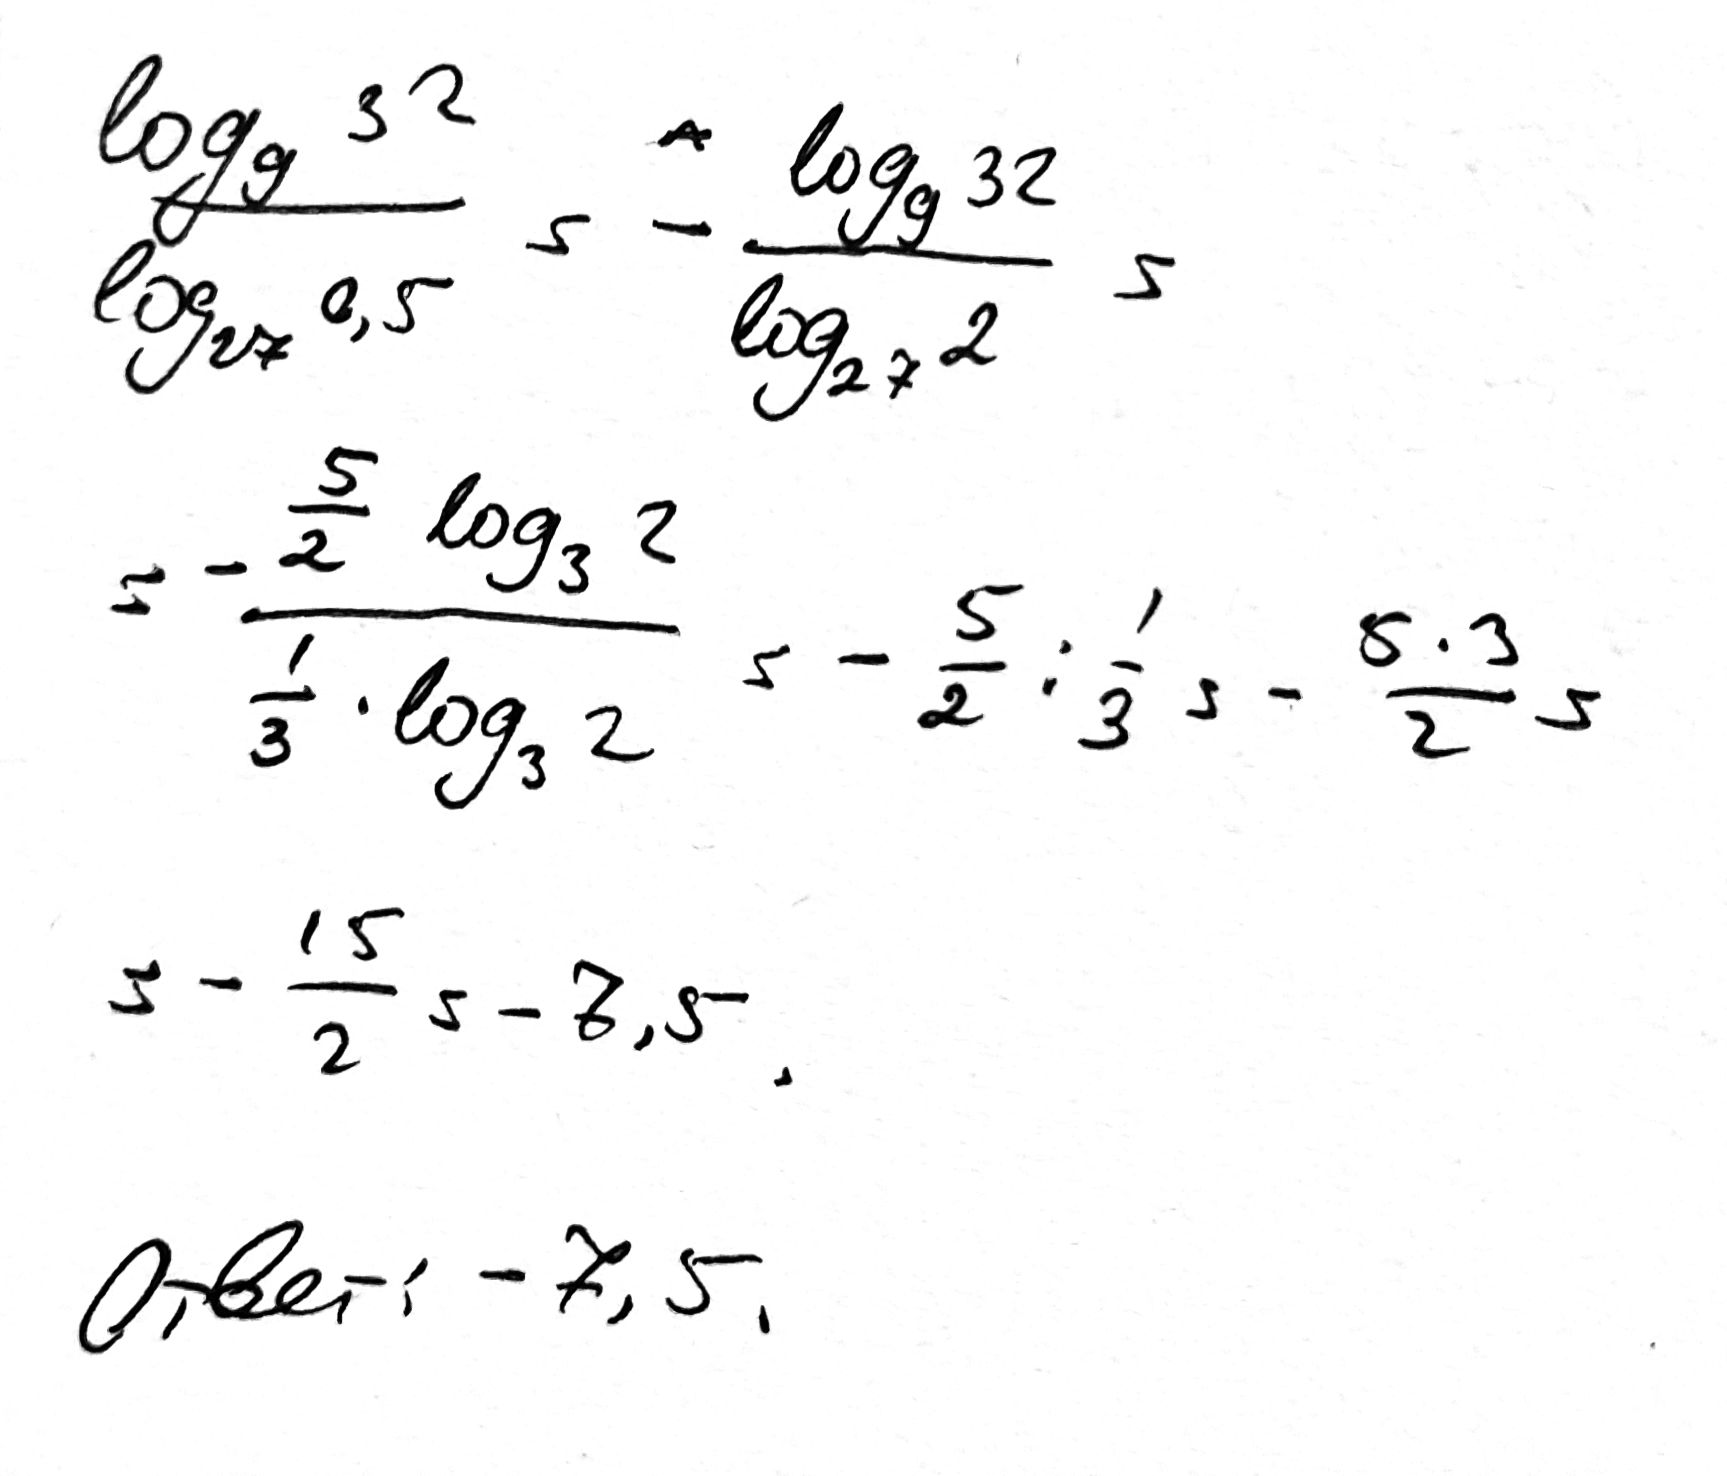 log₉ 32 / log₂₇ 0,5 = - log₉ 32 / log₂₇ 2 =
= - (5/2 log₃ 2) / (1/3 · log₃ 2) = - 5/2 : 1/3 = - 5·3/2 =
= - 15/2 = - 7,5.
Ответ: - 7,5.